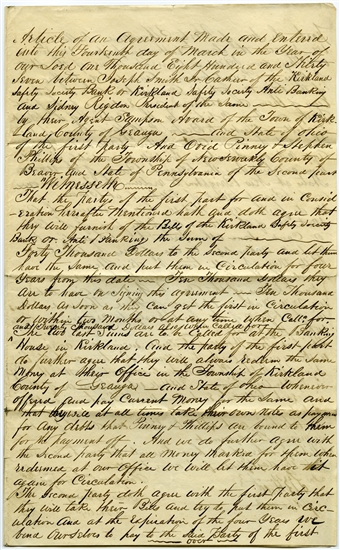 Article of an Agreement Made and entered
into this Fourteenth day of March in the Year of
our Lord One Thousand Eight Hundred and Thirty
Seven between Joseph Smith Jr Cashier of the Kirtland
Safety Society Bank or Kirtland Safety Society Anti Banking
and Sidney Rigdon President of the Same
by their Agent Simpson Avard of the Town of Kirt
land County of Geauga and State of Ohio
of the first party And Ovid Pinney & Stephen
Phillips of the Township of New Sewickly County of
Beaver and State of Pennsylvania of the Second part
Witnesseth
That the partys of the first part for and in Consid
eration hereafter Mentioned hath and doth agree that
they will furnish of the Bills of the Kirtland Safety Society
Bank or Anti Banking the Sum of
Forty Thousand Dollars to the Second party and let them
have the Same and put them in Circulation for four
Years from this date Ten Thousand Dollars they
are to have on signing this agreement Ten Thousand
Dollars as Soon as they can get the first in Circulation
within two Months or at any time when Call for
and Twenty Thousand Dollars when Called for
The two last Sums are to be at the Banking
House in Kirtland. And the party of the first part
do further agree that they will always redeem the Same
Money at their Office in the Township of Kirtland
County of Geauga and State of Ohio Whenever
Offered and pay Current Money for the Same and
that they will at all times take their own Notes as payment
for any debts that Pinney & Phillips are bound to them
for the payment off. And we do further agree with
the Second party that all Money Marked for them when
redeemed at our Office we will let them have that
again for Circulation.
The Second party doth agree with the first party that
they will take their Bills and try to put them in Circ
ulation and at the Expiration of the four Years we
bind ourselves to pay to the Said Party of the first
over